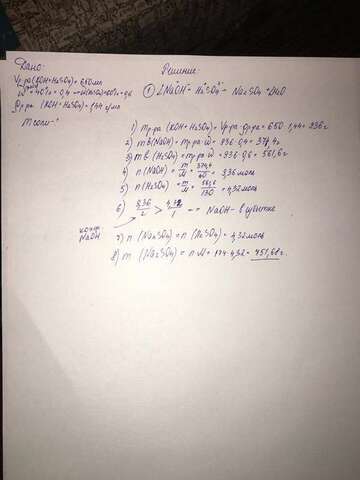 Дано:
Решение:
Vр-ра (KOH + H₂SO₄) = 650мл
ρр-ра (KOH + H₂SO₄) = 1,44 г/мл
m соли - ?
① 2NaOH + H₂SO₄ = Na₂SO₄ + 2H₂O
1) mр-ра (KOH + H₂SO₄) = Vр-ра · ρр-ра = 650 · 1,44 = 936 г
2) m в (NaOH) = mр-ра · ω = 936 · 0,4 = 374,4г
3) m в (H₂SO₄) = mр-ра · ω = 936 · 0,6 = 561,6 г
4) n (NaOH) = m/M = 374,4/40 = 9,36 моль
5) n (H₂SO₄) = m/M = /130 = 4,32 моль
6) 9,36/2 > 4,32/1 → NaOH - в избытке
NaOH
7) n (Na₂SO₄) = n (H₂SO₄) = 4,32 моль
8) m (Na₂SO₄) = n · M = · 4,32 = г.